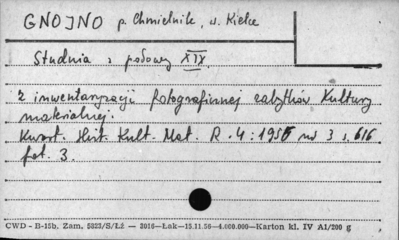 GNOJNO p. Chmielnik, w. Kielce
Studnia z połowy XIX
Z inwentaryzacji fotograficznej zabytków Kultury
materialnej.
Kwart. Hist. Kult. Mat. R. 4: 1956 nr 3 s. 616
fot. 3.
CWD - B-15b, Zam. 5823/S/Lż — 2016—Łak—15.11.56—4.000.000—Karton kl. IV A1/200 g